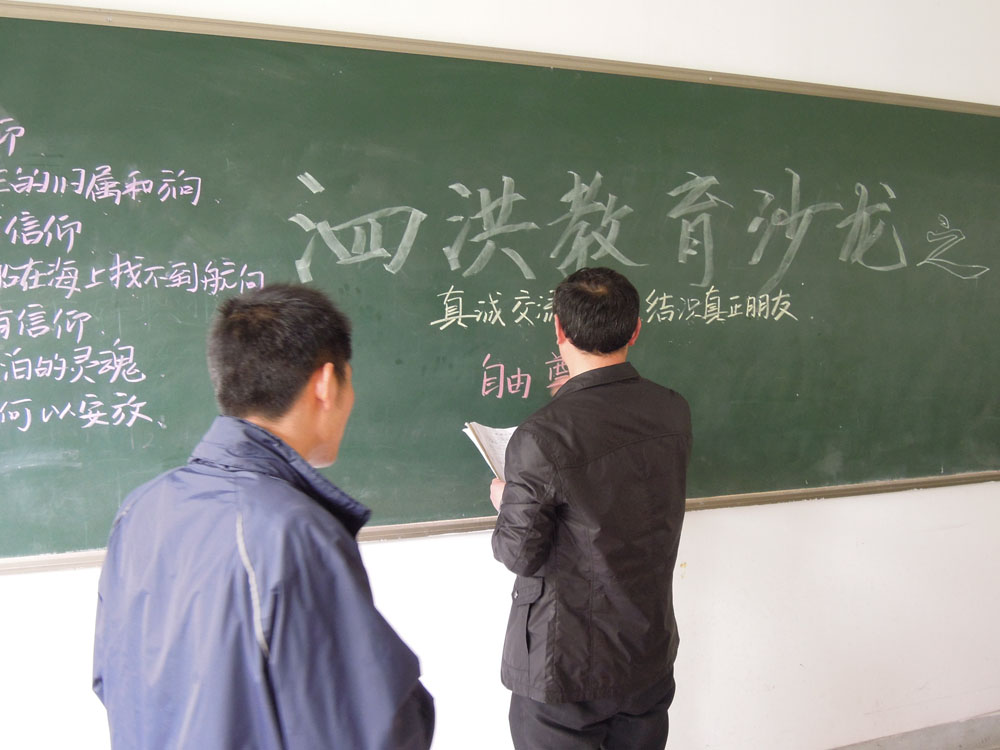 仰
的归属和方向
信仰
在海上找不到航向
有信仰
泊的灵魂
何以安放
泗洪教育沙龙之
真诚交流 结识真正朋友
自由 尊